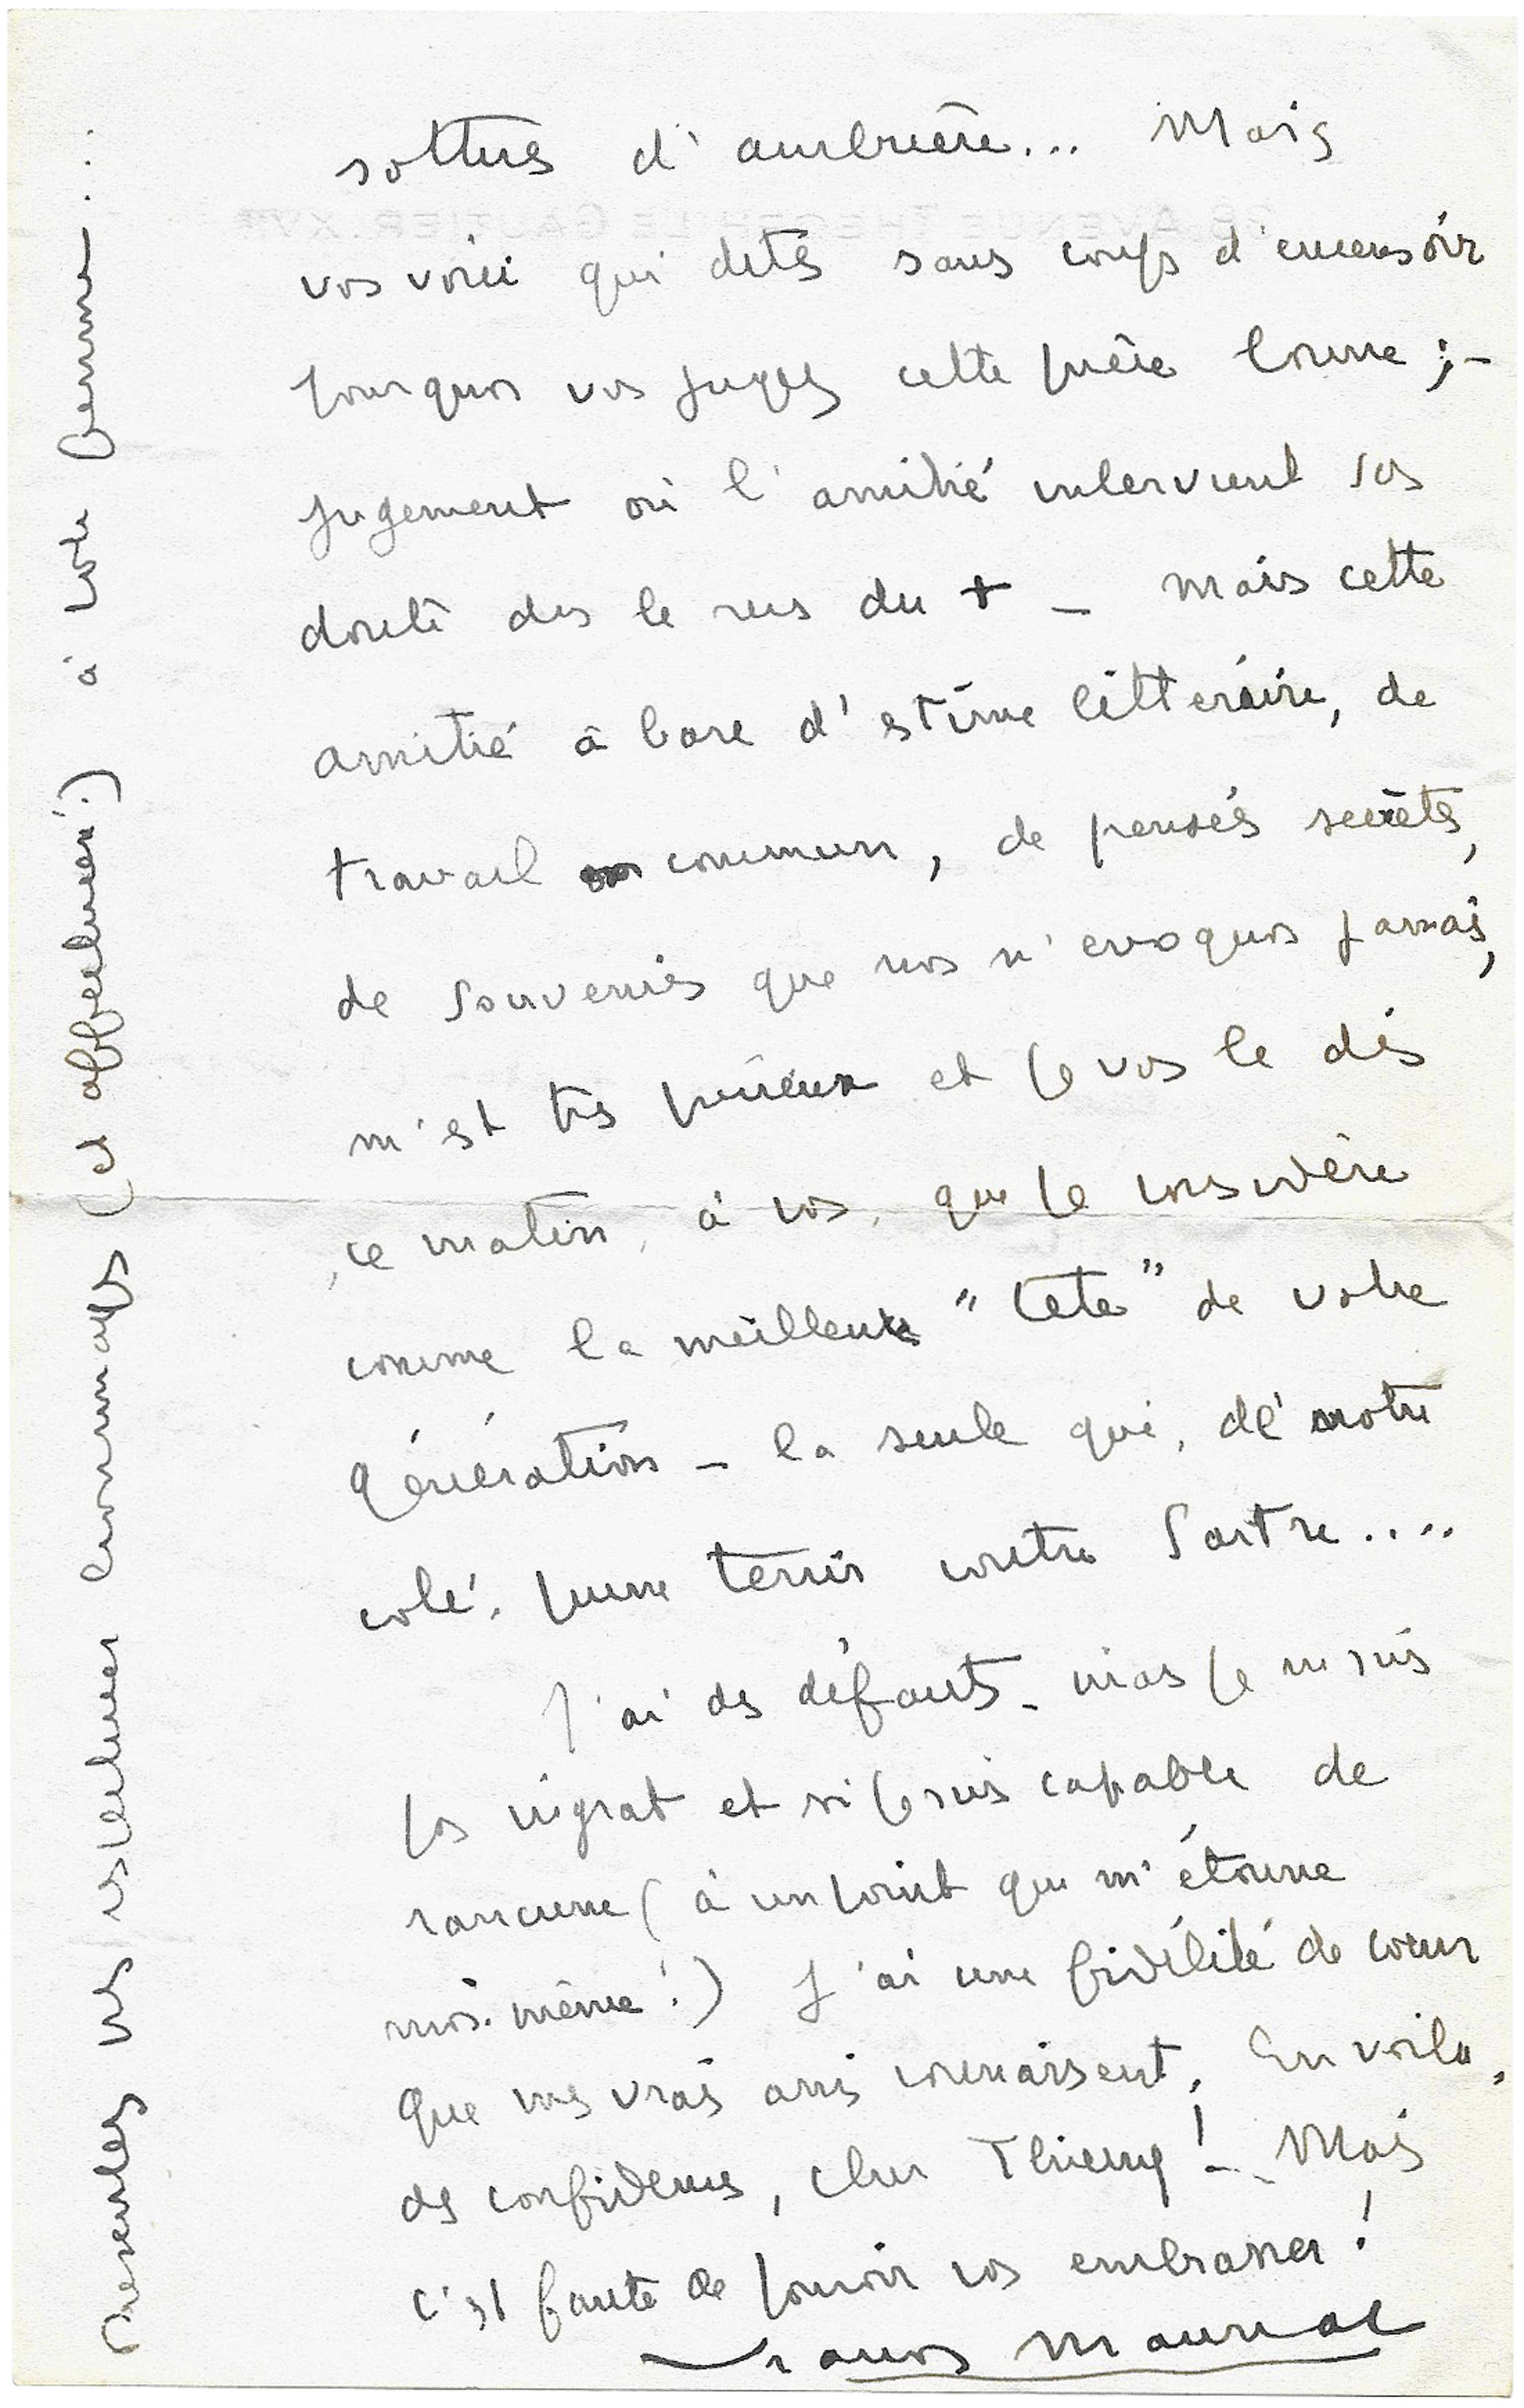 sottises d'ambrière... Mais
vos voici qui dites sans coups d'encensoir
pourquoi vos jugez cette pièce bonne ; –
jugement où l'amitié intervient sas
doute ds le sens du + – mais cette
amitié à base d'estime littéraire, de
travail en commun, de pensées secrètes,
de souvenirs que nos n'evoquos jamais,
m'est très précieux et je vos le dis
ce matin, à vos, que je considère
comme la meilleure "tête" de votre
génération – la seule qui, de notre
côté, puisse tenir contre Sartre....
J'ai des défauts – mais je ne suis
pas ingrat et si je suis capable de
rancune (à un point qui m'étonne
moi-même !) j'ai une fidélité de cœur
que mes vrais amis connaissent. En voilà,
des confidences, cher Thierry ! – Mais
c'est faute de pouvoir vos embrasser !
François Mauriac
Présentez mes respectueux hommages (et affectueux !) à votre femme...
28, AVENUE THÉOPHILE GAUTIER. XVIe